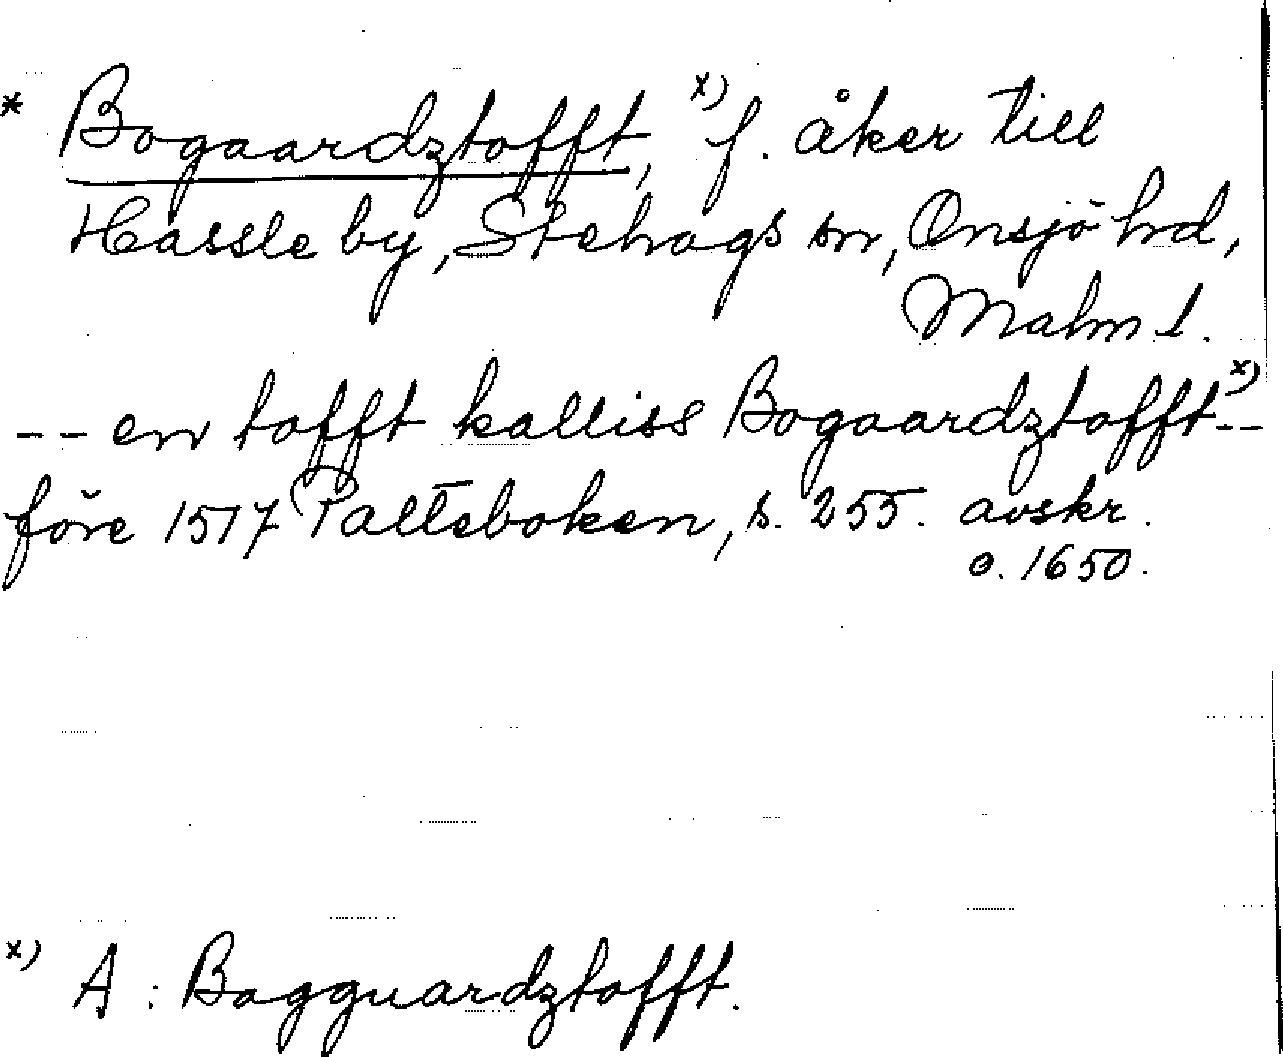 * Bogaardztofft, x) f. åker till
Hassle by, Stehags sn, Onsjö hd,
Malm l.
-- en tofft kalliss Bogaardztofft x) --
före 1517 Palteboken, s. 255. avskr.
o. 1650.
x) A : Bogguardztofft.